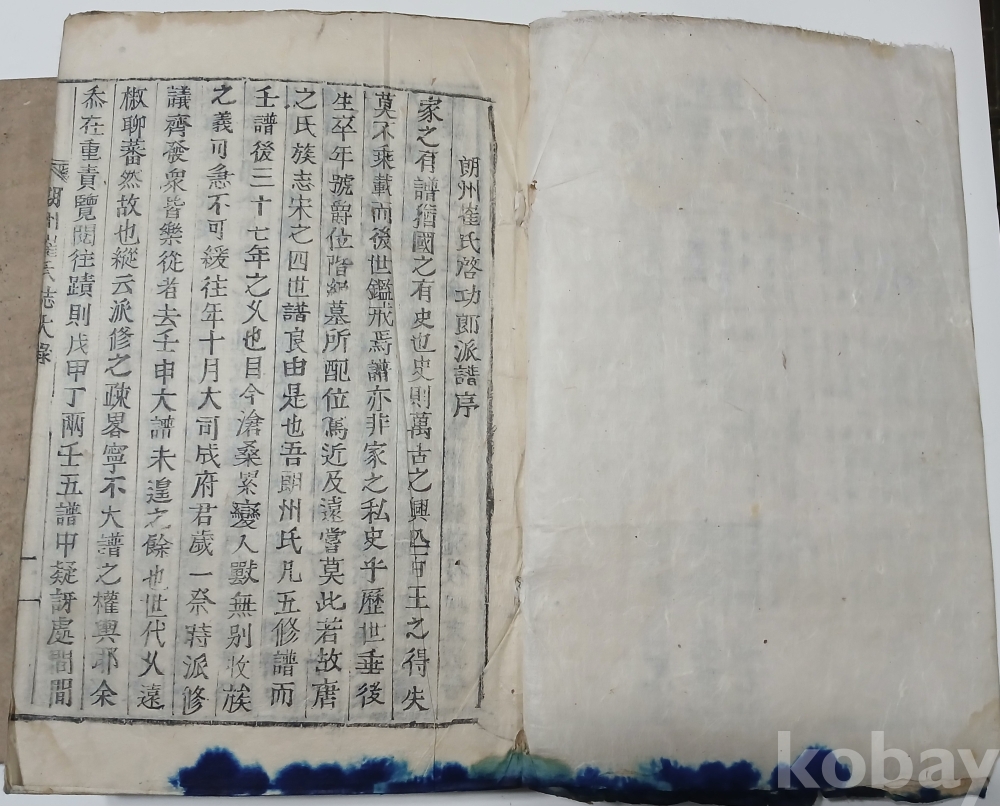 朗州崔氏啓功郎派譜序
家之有譜猶國之有史也史則萬古之興亡中王之得失
莫不乘載而後世鑑戒焉譜亦非家之私史乎歷世垂後
生卒年號爵位階紀墓所配位寫近及遠嘗莫此若故唐
之氏族志宋之四世譜良由是也吾朗州氏凡五修譜而
壬譜後三十七年之乆也目今滄桑累變人獸無別收族
之義可急不可緩往年十月大司成府君歲一祭蒔派修
議齊發衆皆樂從者去壬申大譜未遑之餘也世代乆遠
椒聊蕃然故也縱云派修之疎畧寧不大譜之權輿耶余
忝在重責覽閱往蹟則戊甲丁兩壬五譜中疑訝處間間
朗州崔氏誌大錄
一
kobay